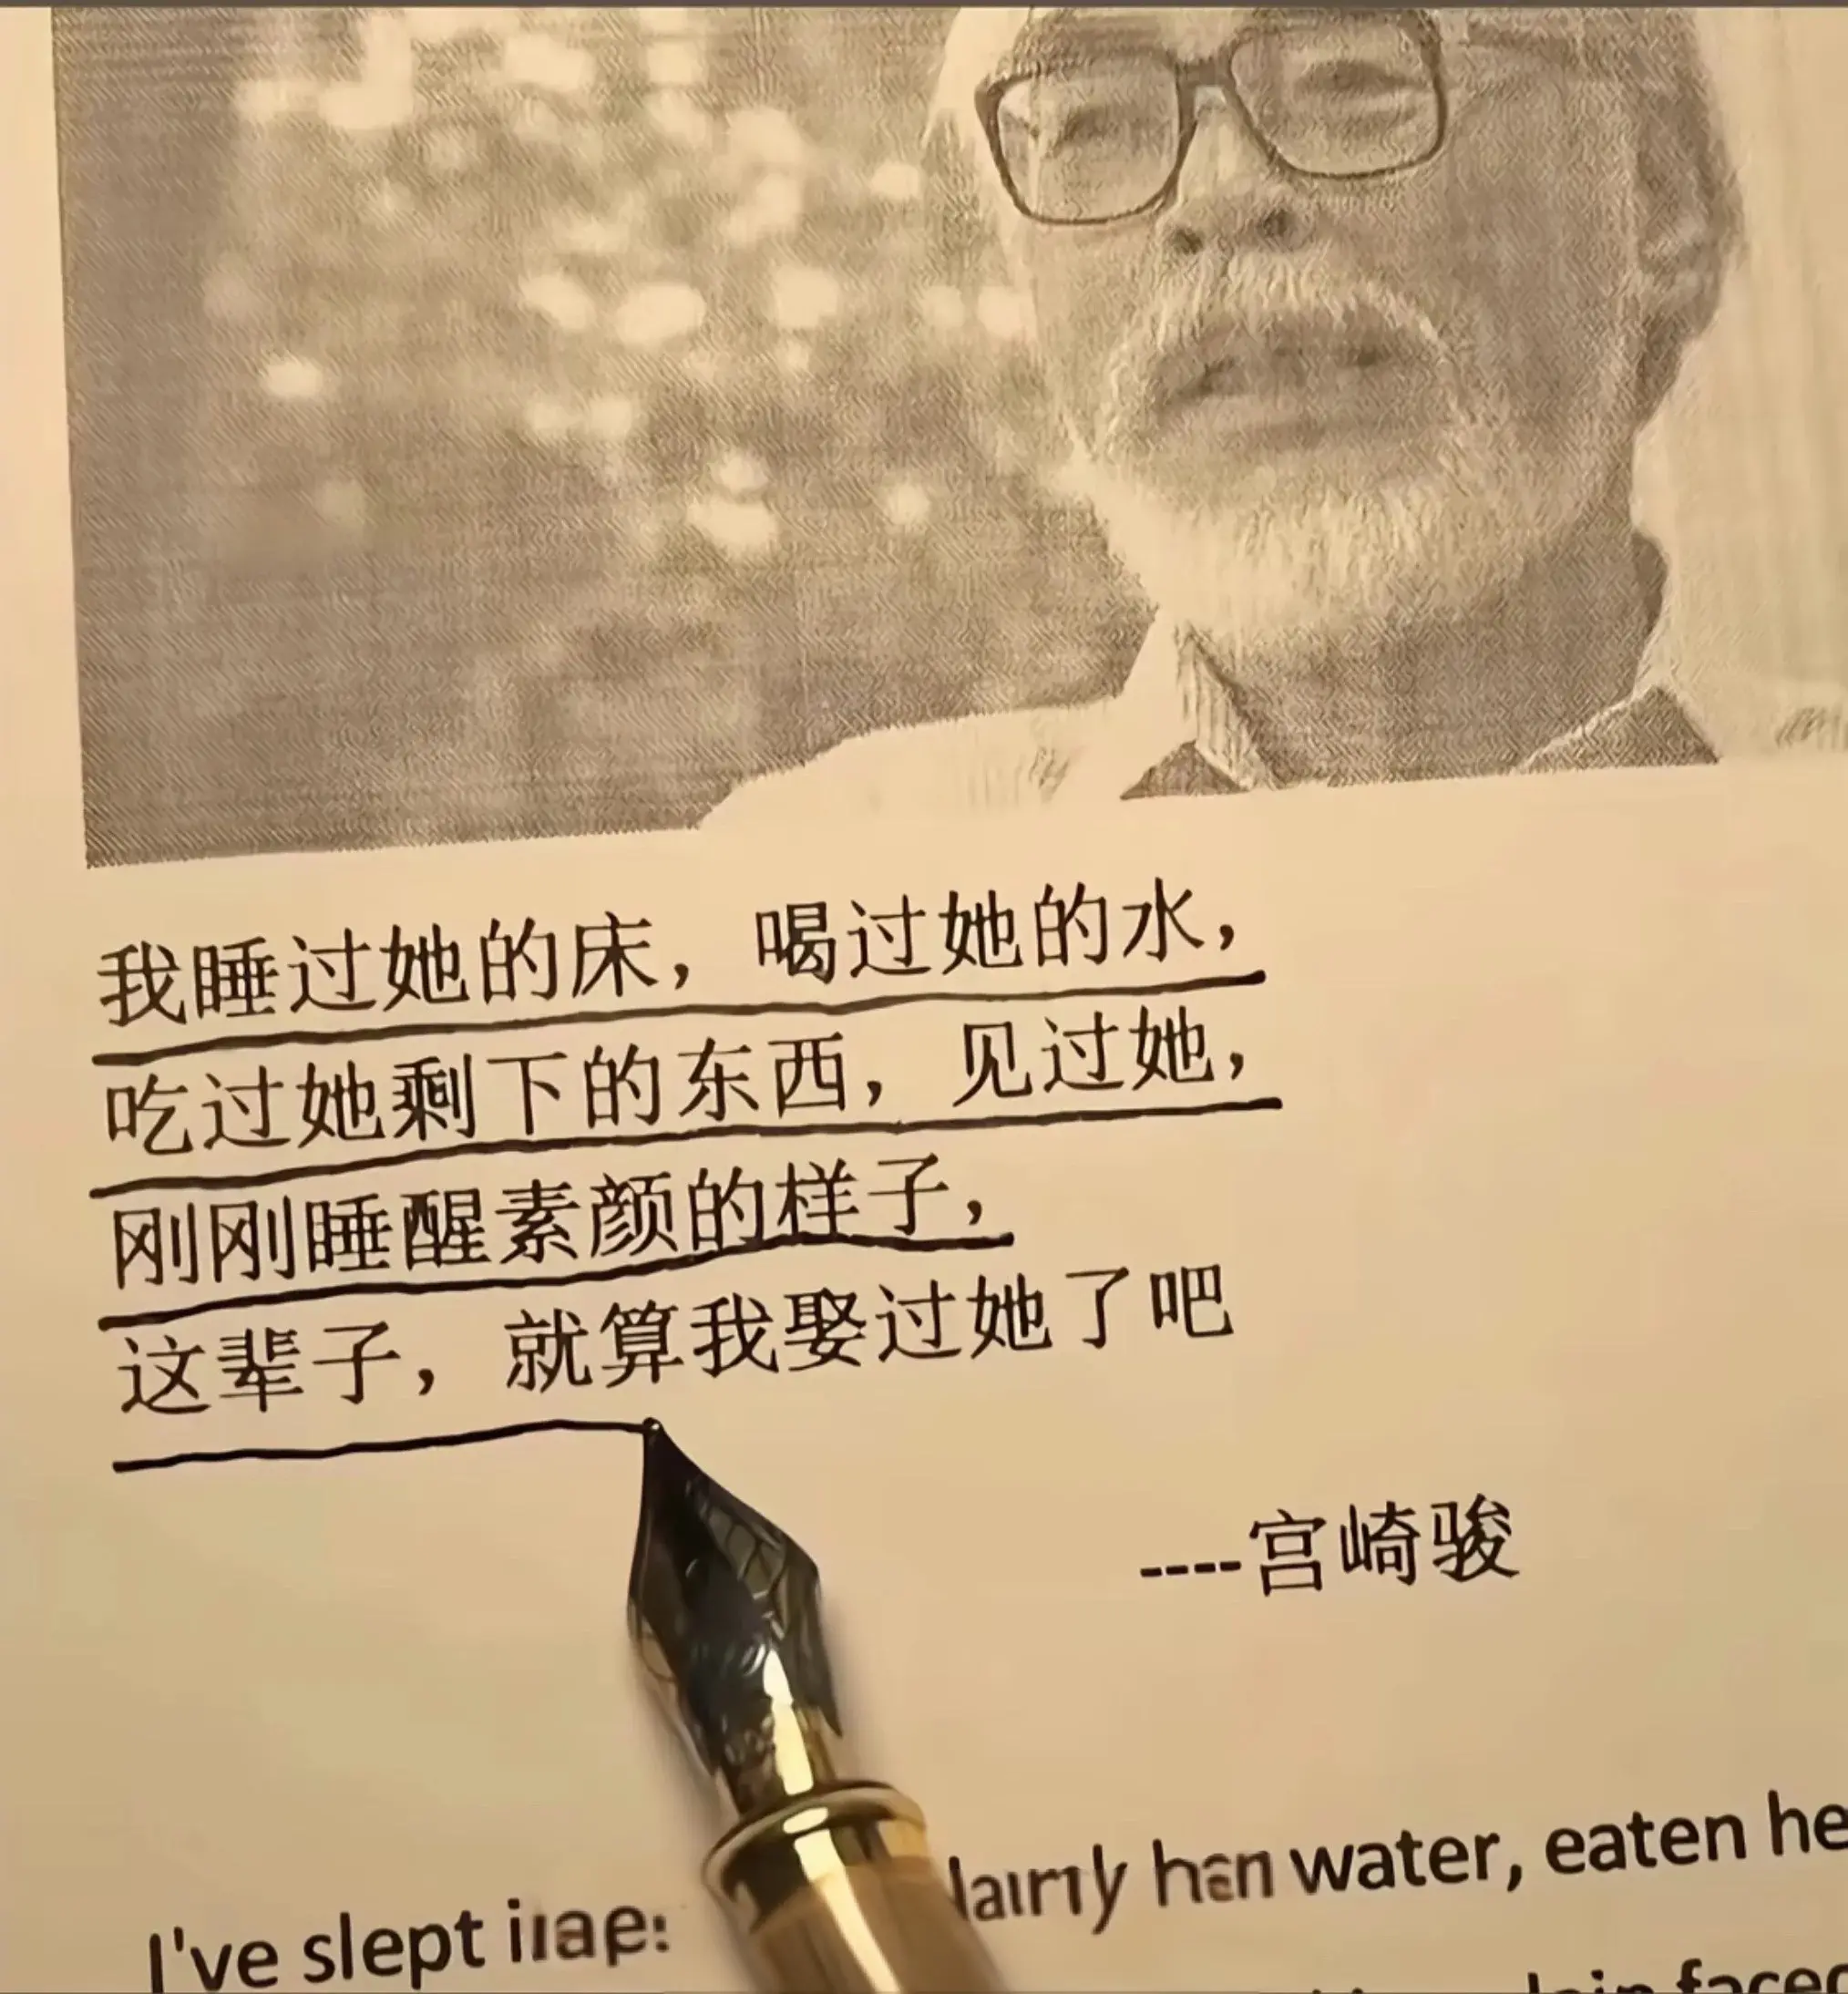 我睡过她的床，喝过她的水，
吃过她剩下的东西，见过她，
刚刚睡醒素颜的样子，
这辈子，就算我娶过她了吧
----宫崎骏
I've slept water, eaten he
faced